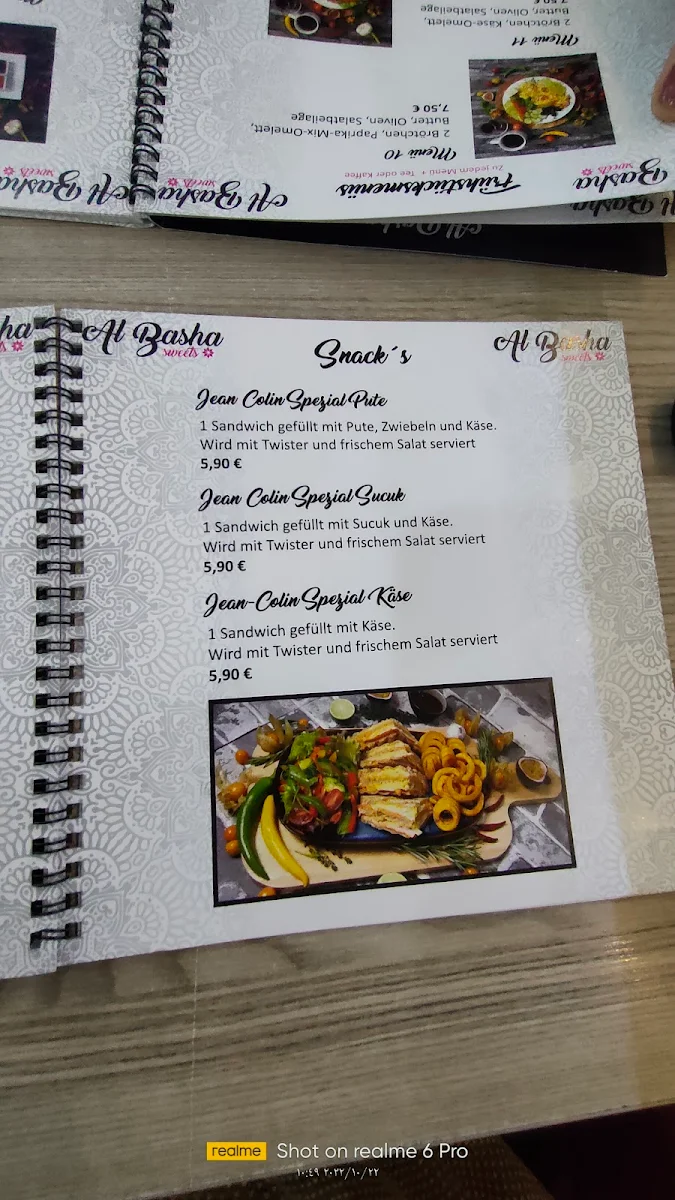 2 Brötchen, Käse-Omelett,
Butter, Oliven, Salatbeilage
Menü 11
7,50 €
2 Brötchen, Paprika-Mix-Omelett,
Butter, Oliven, Salatbeilage
Menü 10
Zu jedem Menü + Tee oder Kaffee
Frühstücksmenüs
Al Basha
sweets
Al Basha
sweets
Basha
sweets
Al Basha
sweets
Snack´s
Al Basha
sweets
Jean Colin Spezial Pute
1 Sandwich gefüllt mit Pute, Zwiebeln und Käse.
Wird mit Twister und frischem Salat serviert
5,90 €
Jean Colin Spezial Sucuk
1 Sandwich gefüllt mit Sucuk und Käse.
Wird mit Twister und frischem Salat serviert
5,90 €
Jean-Colin Spezial Käse
1 Sandwich gefüllt mit Käse.
Wird mit Twister und frischem Salat serviert
5,90 €
realme Shot on realme 6 Pro
١٠:٤٩ ٢٠٢٢/١٠/٢٢